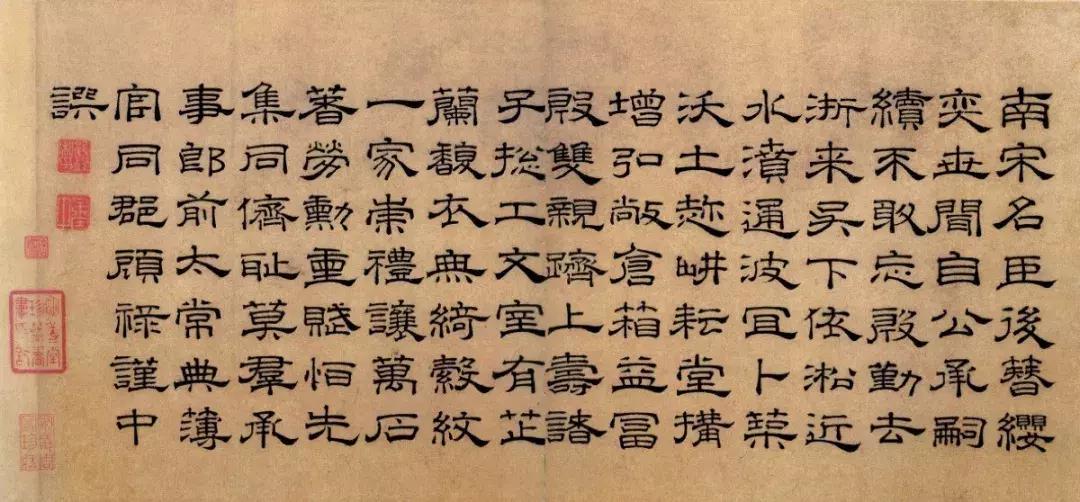 南宋名臣後簪纓
奕世聞自公承嗣
續不敢忘殷勤去
浙来吴下依淞近
水濆通波冝卜築
沃土趂畊耘堂搆
增弘敞倉箱益冨
殷雙親躋上壽諸
子揔工文室有芷
蘭馥衣無綺縠紋
一家崇禮讓萬石
著勞勳重賦怕先
集同儕耻莫羣承
事郎前太常典薄
官同郡顧祿謹中
譔